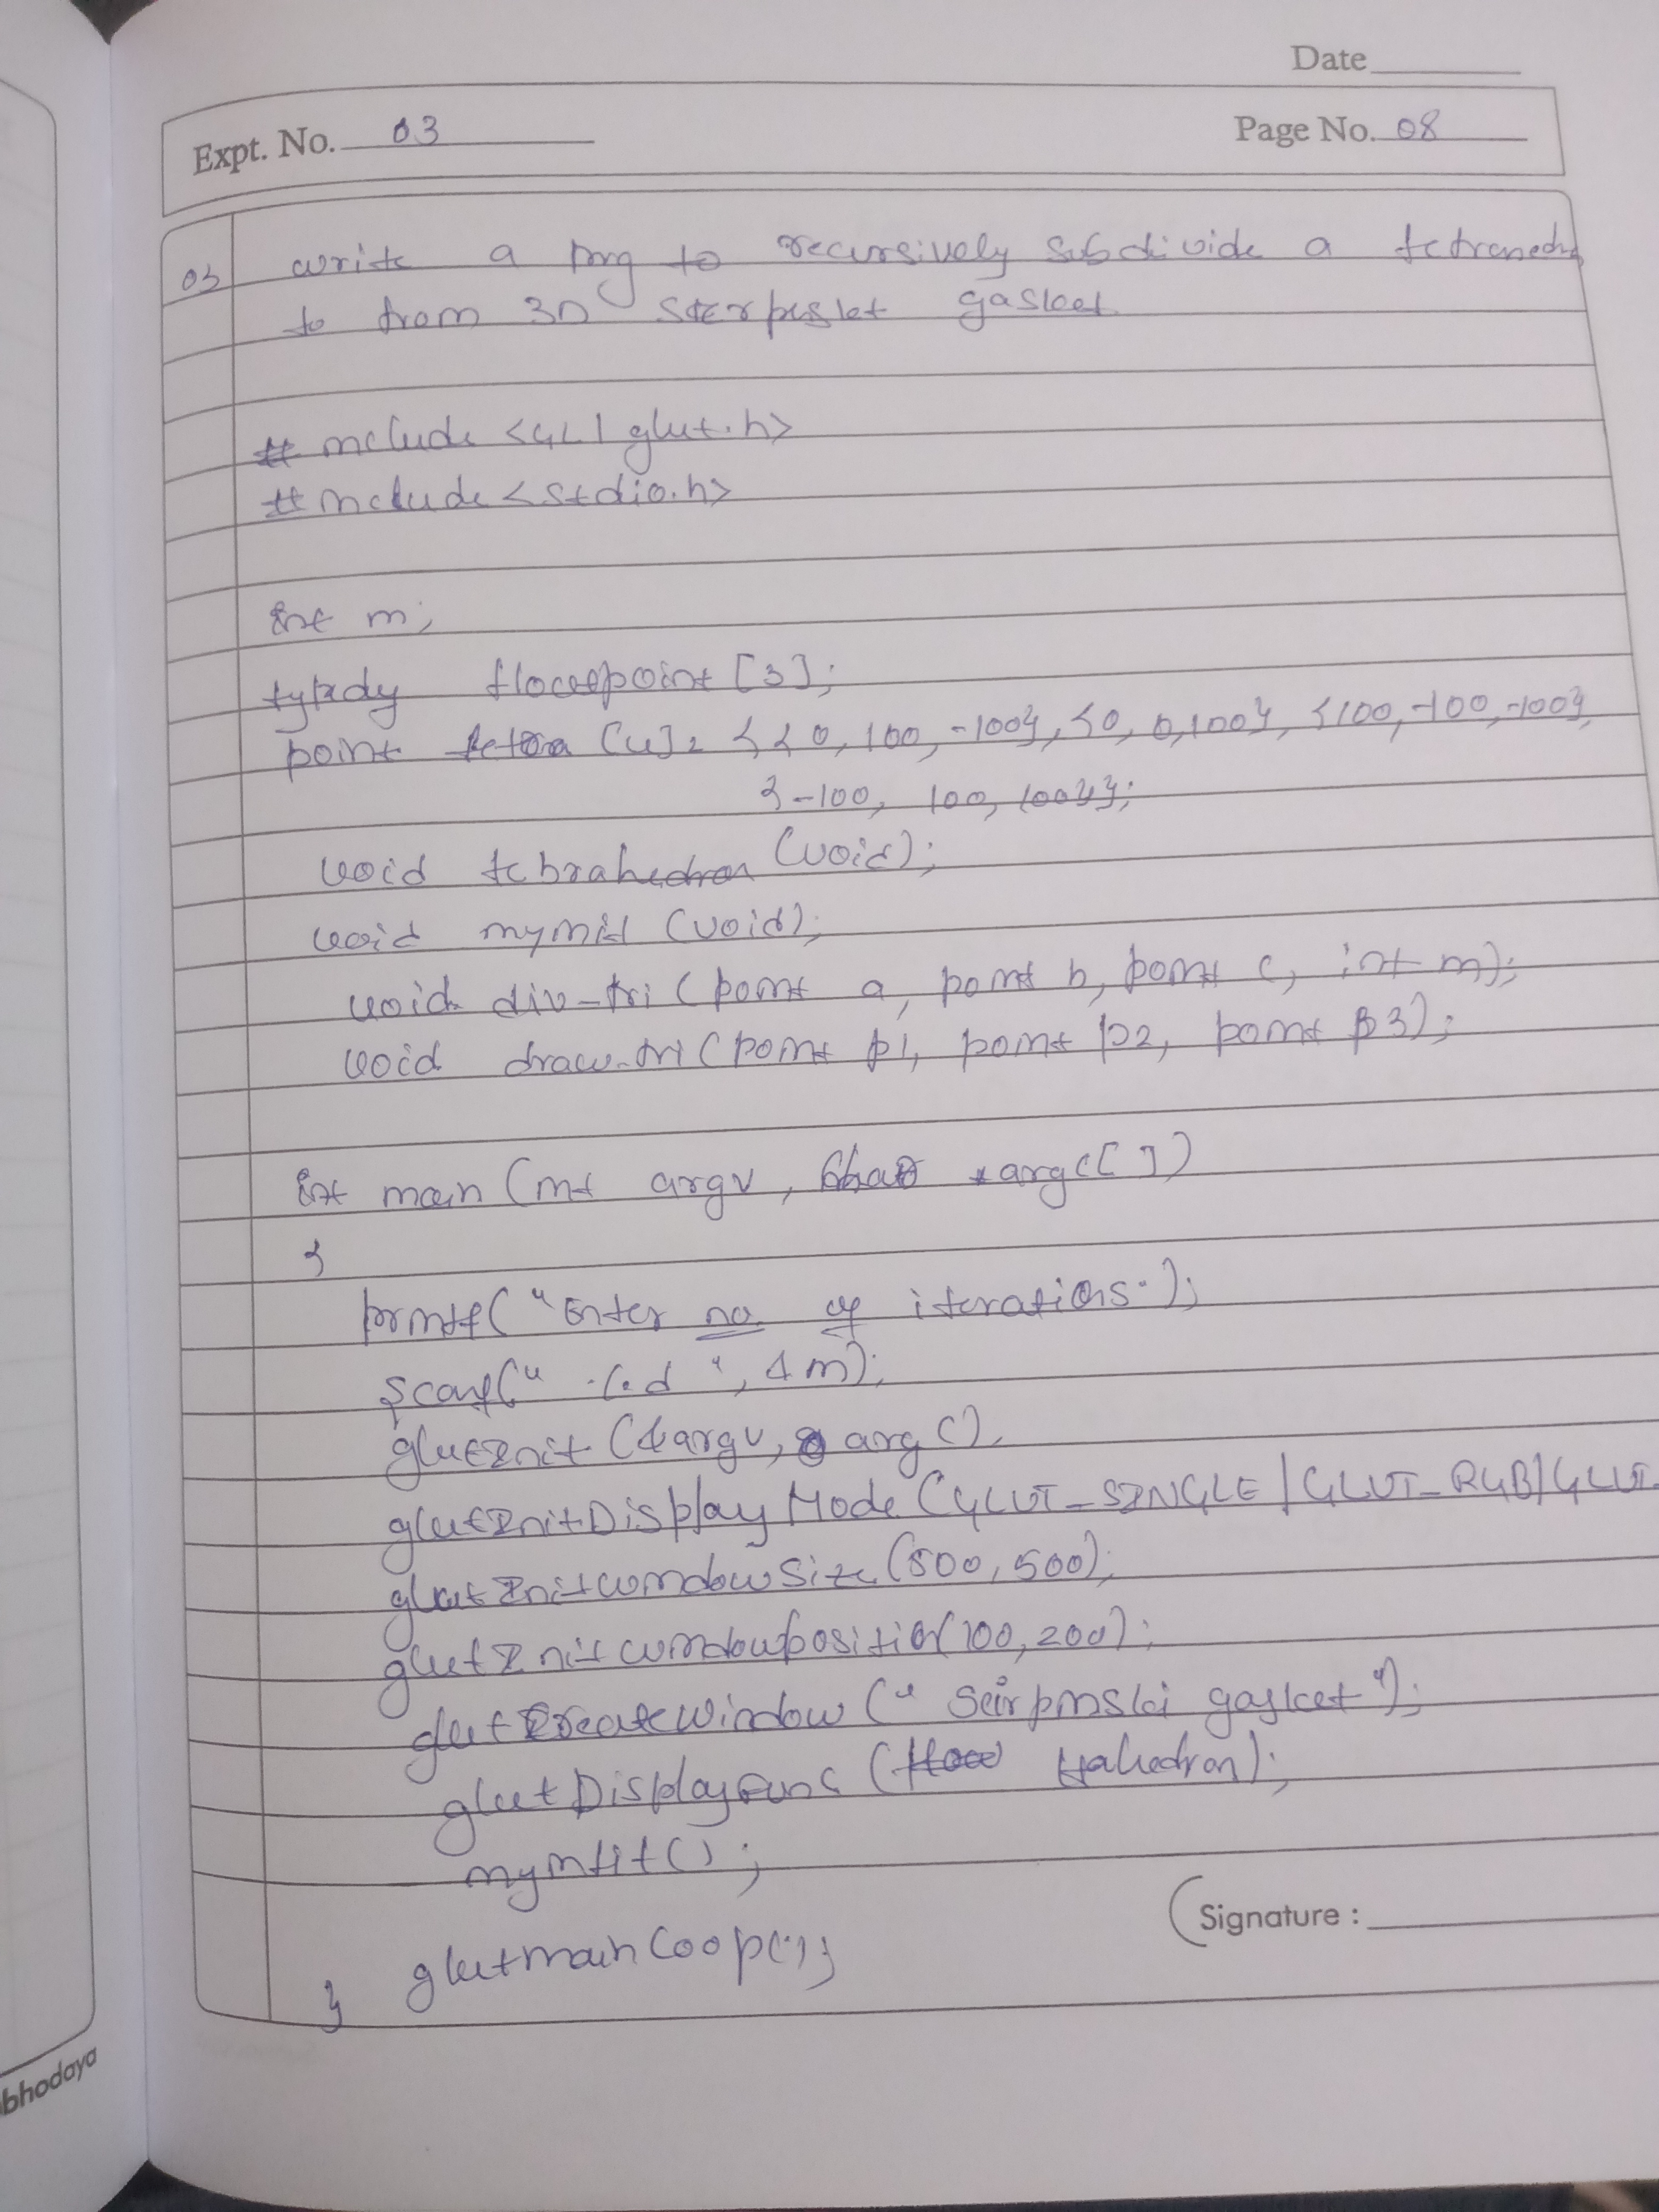 Date
Expt. No. 03
Page No. 08
03 write a prog to recursively subdivide a tetrahedra
to from 3D gasket
# include <GL/glut.h>
# include <stdio.h>
int m;
float point [3];
point tetra [4] = {{0, 100, -100}, {0, 0, 100}, {100, -100, -100},
{-100, 100, 100}};
void tetrahedron (void);
void myinit (void);
void div-tri (point a, point b, point c, int m);
void draw-tri (point p1, point p2, point p3);
int main (int argv, char *argc[])
{
printf("Enter no. of iterations.");
scanf(" %d ", &m);
glutInit (&argv, argc),
glutInitDisplayMode (GLUT_SINGLE | GLUT_RGB | GLUT
glutInitwindowSize (500, 500);
glutInitwindowposition(100, 200);
glutCreateWindow (" Seirpinski gasket ");
glutDisplayFunc ( );
myintit();
glutmainLoop();
}
Signature :
bhodaya